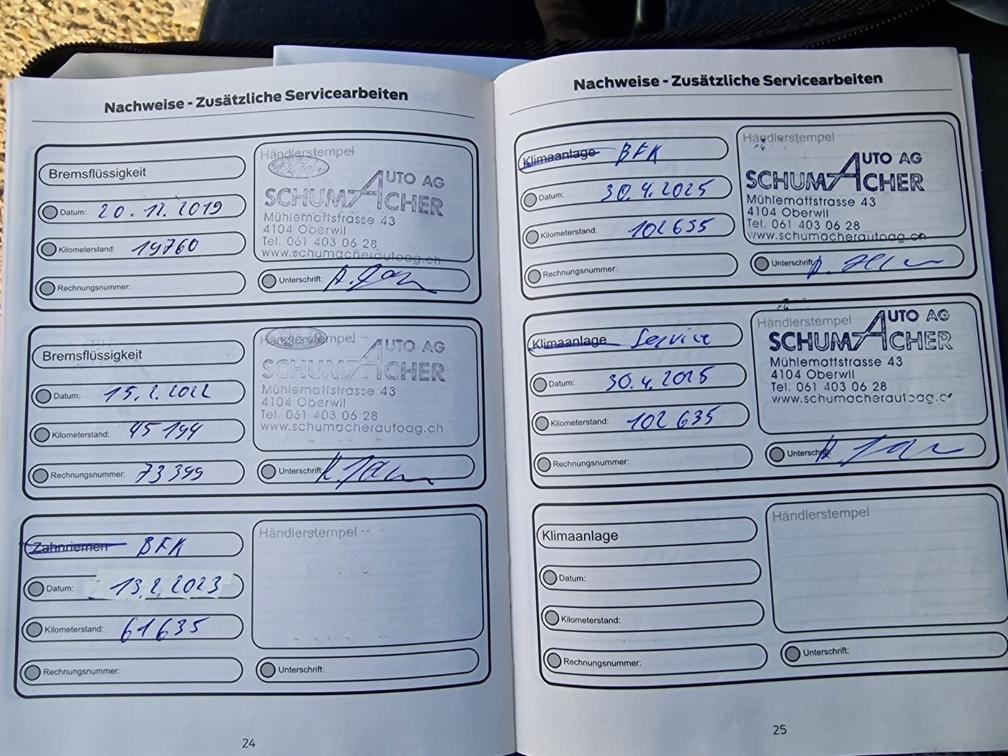 Nachweise - Zusätzliche Servicearbeiten
Bremsflüssigkeit
Datum: 20.12.2019
Kilometerstand: 19760
Rechnungsnummer:
Händlerstempel
AUTO AG
SCHUMACHER
Mühlemattstrasse 43
4104 Oberwil
Tel. 061 403 06 28
www.schumacherautoag.ch
Unterschrift:
Bremsflüssigkeit
Datum: 15.2.2022
Kilometerstand: 45194
Rechnungsnummer: 73399
Händlerstempel
AUTO AG
SCHUMACHER
Mühlemattstrasse 43
4104 Oberwil
Tel. 061 403 06 28
www.schumacherautoag.ch
Unterschrift:
Zahnriemen BFK
Datum: 13.2.2023
Kilometerstand: 61635
Rechnungsnummer:
Händlerstempel
Unterschrift:
24
Nachweise - Zusätzliche Servicearbeiten
Klimaanlage BFK
Datum: 30.4.2025
Kilometerstand: 102635
Rechnungsnummer:
Händlerstempel
AUTO AG
SCHUMACHER
Mühlemattstrasse 43
4104 Oberwil
Tel. 061 403 06 28
www.schumacherautoag.ch
Unterschrift:
Klimaanlage Service
Datum: 30.4.2025
Kilometerstand: 102635
Rechnungsnummer:
Händlerstempel
AUTO AG
SCHUMACHER
Mühlemattstrasse 43
4104 Oberwil
Tel. 061 403 06 28
www.schumacherautoag.c
Unterschrift:
Klimaanlage
Datum:
Kilometerstand:
Rechnungsnummer:
Händlerstempel
Unterschrift:
25